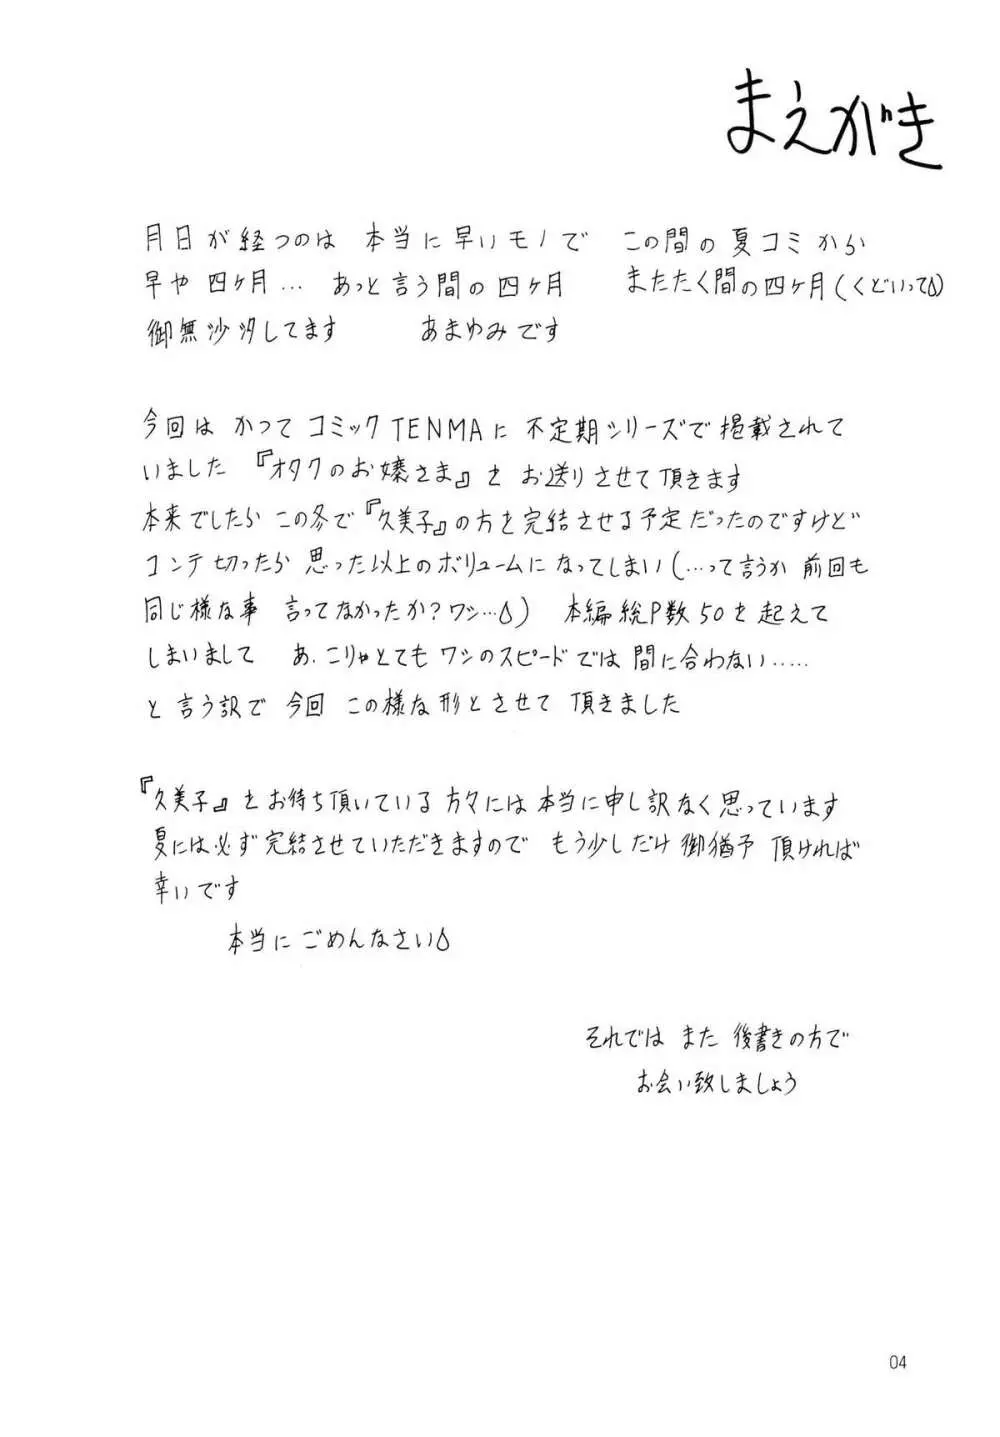 まえがき
月日が経つのは 本当に早いモノで この間の夏コミから
早や四ヶ月… あっと言う間の四ヶ月 またたく間の四ヶ月(くどいって💧)
御無沙汐してます あまゆみです
今回は かつて コミックTENMAに 不定期シリーズで掲載されて
いました 『オタクのお嬢さま』を お送りさせて頂きます
本来でしたら この冬で『久美子』の方を完結させる予定だったのですけど
コンテ切ったら 思った以上のボリュームになってしまい(…って言うか 前回も
同じ様な事 言ってなかったか?ワシ…💧) 本編総P数50を起えて
しまいまして あ、こりゃとても ワシのスピードでは 間に合わない……
と言う訳で 今回 この様な形とさせて 頂きました
『久美子』をお待ち頂いている 方々には 本当に申し訳なく思っています
夏には必ず完結させていただきますので もう少しだけ 御猶予 頂ければ
幸いです
本当に ごめんなさい💧
それでは また 後書きの方で
お会い致しましょう
04